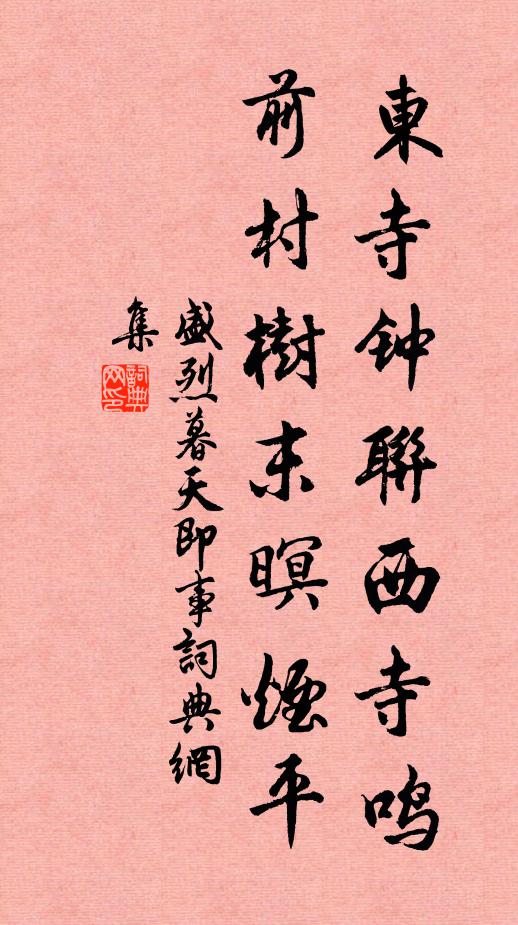 東寺钟聯西寺鸣
前村樹末暝煙平
盛烈暮天即事詞典網
集
詞典
网印